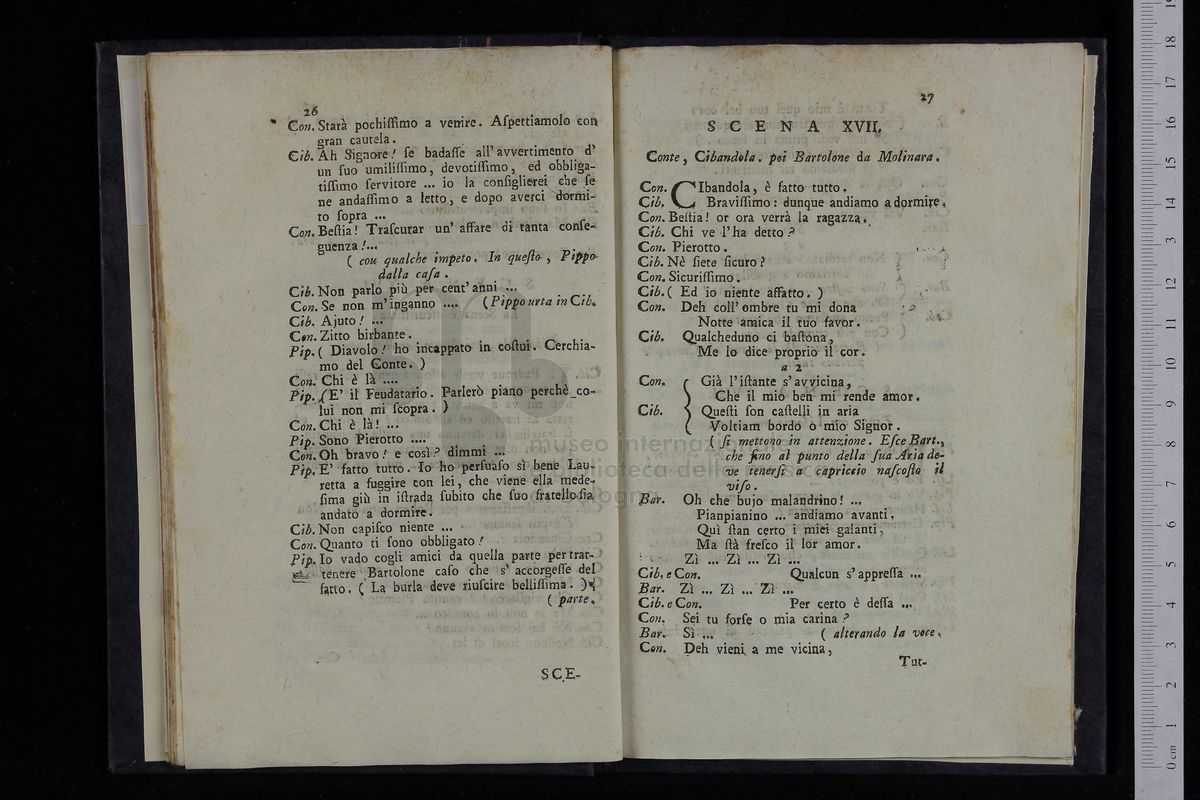 26
Con. Starà pochiſſimo a venire. Aſpettiamolo con
gran cautela.
Cib. Ah Signore! ſe badaſſe all'avvertimento d'
un ſuo umiliſſimo, devotiſſimo, ed obbliga-
tiſſimo ſervitore ... io la conſiglierei che ſe
ne andaſſimo a letto, e dopo averci dormi-
to ſopra ...
Con. Beſtia! Traſcurar un' affare di tanta conſe-
guenza!...
( cou qualche impeto. In queſto, Pippo
dalla caſa.
Cib. Non parlo più per cent'anni ...
Con. Se non m'inganno .... (Pippo urta in Cib.
Cib. Ajuto! ...
Con. Zitto birbante.
Pip. ( Diavolo! ho incappato in coſtui. Cerchia-
mo del Conte. )
Con. Chi è là ....
Pip. (E' il Feudatario. Parlerò piano perchè co-
lui non mi ſcopra. )
Con. Chi è là! ...
Pip. Sono Pierotto ....
Con. Oh bravo! e così? dimmi ...
Pip. E' fatto tutto. Io ho perſuaſo sì bene Lau-
retta a fuggire con lei, che viene ella mede-
ſima giù in iſtrada ſubito che ſuo fratello ſia
andato a dormire.
Cib. Non capiſco niente ...
Con. Quanto ti ſono obbligato!
Pip. Io vado cogli amici da quella parte per trat-
tenere Bartolone caſo che s'accorgeſſe del
fatto. ( La burla deve riuſcire belliſſima. )
( parte.
SCE-
27
SCENA XVII.
Conte, Cibandola. poi Bartolone da Molinara.
Con. CIbandola, è fatto tutto.
Cib. Braviſſimo: dunque andiamo a dormire.
Con. Beſtia! or ora verrà la ragazza.
Cib. Chi ve l'ha detto?
Con. Pierotto.
Cib. Nè ſiete ſicuro?
Con. Sicuriſſimo.
Cib. ( Ed io niente affatto. )
Con. Deh coll'ombre tu mi dona
Notte amica il tuo favor.
Cib. Qualcheduno ci baſtona,
Me lo dice proprio il cor.
a 2
Con. Già l'iſtante s'avvicina,
Che il mio ben mi rende amor.
Cib. Queſti ſon caſtelli in aria
Voltiam bordo o mio Signor.
( ſi mettono in attenzione. Eſce Bart.,
che fino al punto della ſua Aria de-
ve tenerſi a capriccio naſcoſto il
viſo.
Bar. Oh che bujo malandrino! ...
Pianpianino ... andiamo avanti.
Quì ſtan certo i miei galanti,
Ma ſtà freſco il lor amor.
Zì ... Zì ... Zì ...
Cib. e Con. Qualcun s'appreſſa ...
Bar. Zì ... Zì ... Zì ...
Cib. e Con. Per certo è deſſa ...
Con. Sei tu forſe o mia carina?
Bar. Sì ... ( alterando la voce.
Con. Deh vieni a me vicina,
Tut-